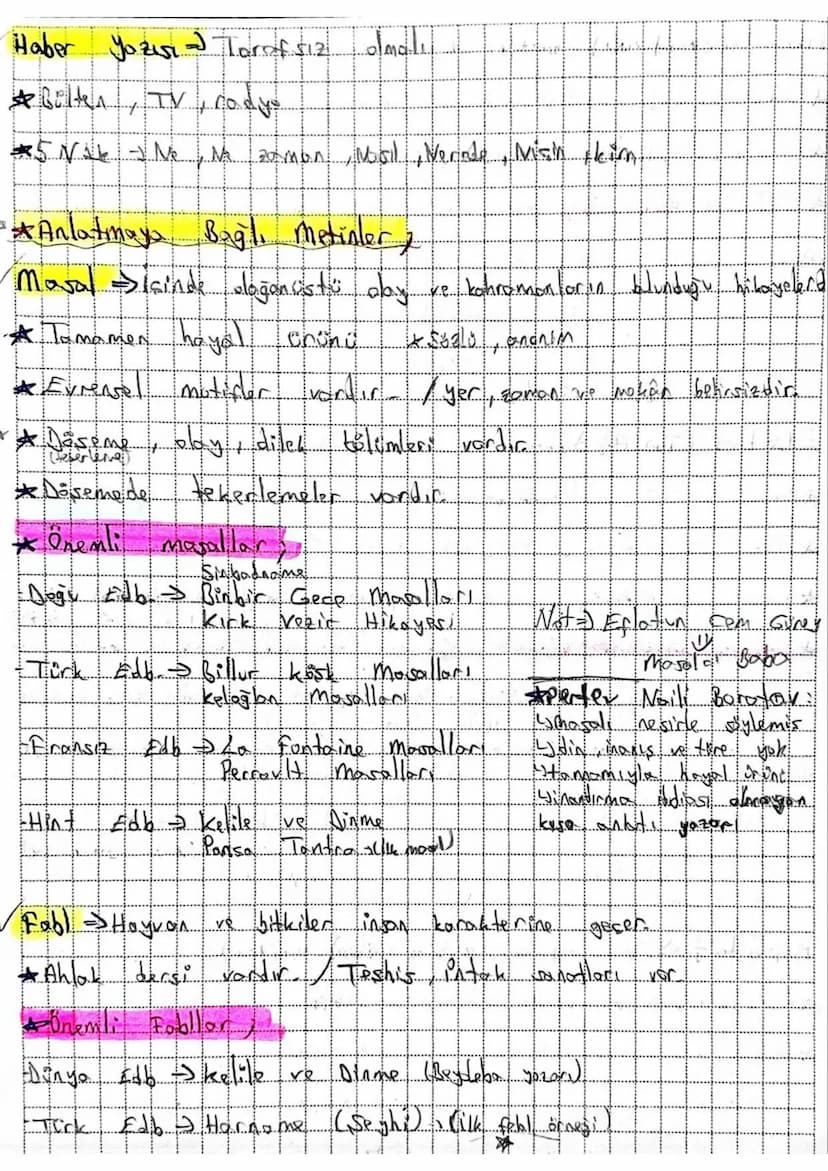 Haber Yazısı => Tarafsız olmalı
* Bülten, TV, radyo
* 5N1k -> Ne, Ne zaman, Nasıl, Nerede, Niçin, kim
* Anlatmaya Bağlı Metinler;
Masal => İçinde olağanüstü olay ve kahramanların blunduğu hikayelerd
* Tamamen hayal ürünü * Sözlü, anonim
* Evrensel motifler vardır. / yer, zaman ve mekân belirsizdir.
* Döşeme, olay, dilek bölümleri vardır.
(tekerleme)
* Döşemede tekerlemeler vardır.
* Önemli masallar;
Sinbadname
- Doğu Edb. -> Binbir Gece Masalları
Kırk Vezir Hikayesi
- Türk Edb. -> Billur köşk Masalları
keloğlan Masalları
- Fransız Edb -> La Fontaine Masalları
Perrault Masalları
- Hint Edb -> Kelile ve Dinme
Pança Tantra -> (İlk masal)
Not => Eflatun Cem Güney
Masalcı Baba
* Pertev Naili Boratav:
↳ masalı nesirle söylemiş
↳ din, inanış ve töre yok
↳ tamamıyla hayal ürünü
↳ inandırma iddiası olmayan
kısa anlatı yazar
Fabl => Hayvan ve bitkiler insan karakterine geçer.
* Ahlak dersi vardır. / Teşhis, İntak sanatları var
* Önemli Fabllar;
- Dünya Edb -> kelile ve Dinme (Beydeba yazarı)
- Türk Edb -> Harname (Şeyhi), (ilk fabl örneği)